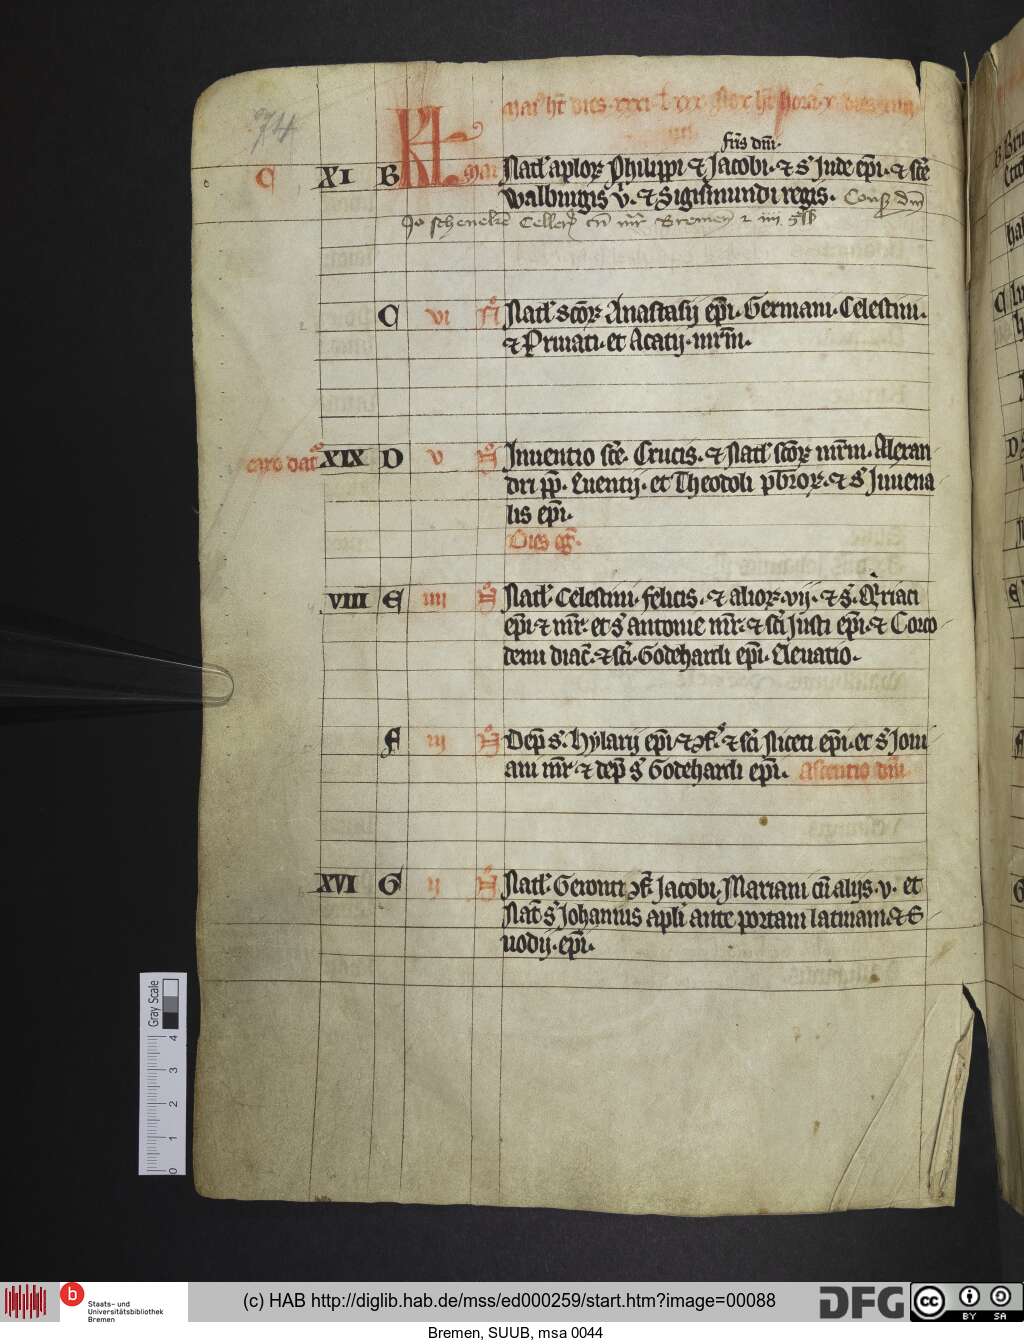 74
Mai' ht dies xxxi l' xxx Nox ht horas
KL
C XI B Mai Natl' aplorꝝ Philippi ⁊ Jacobi. ⁊ s' Jude ep̄i. ⁊ sc̄e
fr̄is dn̄i.
Walburgis v̄. ⁊ Sigismundi regis.
C vi N Natl' scōrꝝ Anastasij ep̄i. Germani. Celestini.
⁊ Priuati. et Acatij. mr̄m.
XIX D v N Inuentio sc̄e. Crucis. ⁊ Natl' scōrꝝ mr̄m. Alexan
dri pp̄. Euentij. et Theodoli p̄brorꝝ. ⁊ s' Juuena
lis ep̄i.
Dies eḡ.
VIII E iiii N Natl' Celestini. felicis. ⁊ aliorꝝ. vij. ⁊ s'. Qiriaci
ep̄i ⁊ mr̄. et s' antonie mr̄. ⁊ sc̄i Justi ep̄i. ⁊ Corco
demi diac̄. ⁊ sc̄i. Godehardi ep̄i. Eleuatio.
F iij N Dep̄ s'. Hylarij ep̄i ⁊ ꝯf'. ⁊ sc̄i Niceti ep̄i. et s' Joui
ani mr̄. ⁊ dep̄ s' Godehardi ep̄i. Ascentio dn̄i
XVI G ij N Natl'. Geronti ꝯf̄. Jacobi. Mariani cū alijs. v. et
Nat̄ s' Johannis apl'i ante portam latinam. ⁊ E
uodij. ep̄i.
Gray Scale
4
3
2
1
0
b
Staats- und
Universitätsbibliothek
Bremen
(c) HAB http://diglib.hab.de/mss/ed000259/start.htm?image=00088
DFG
cc
BY SA
Bremen, SUUB, msa 0044